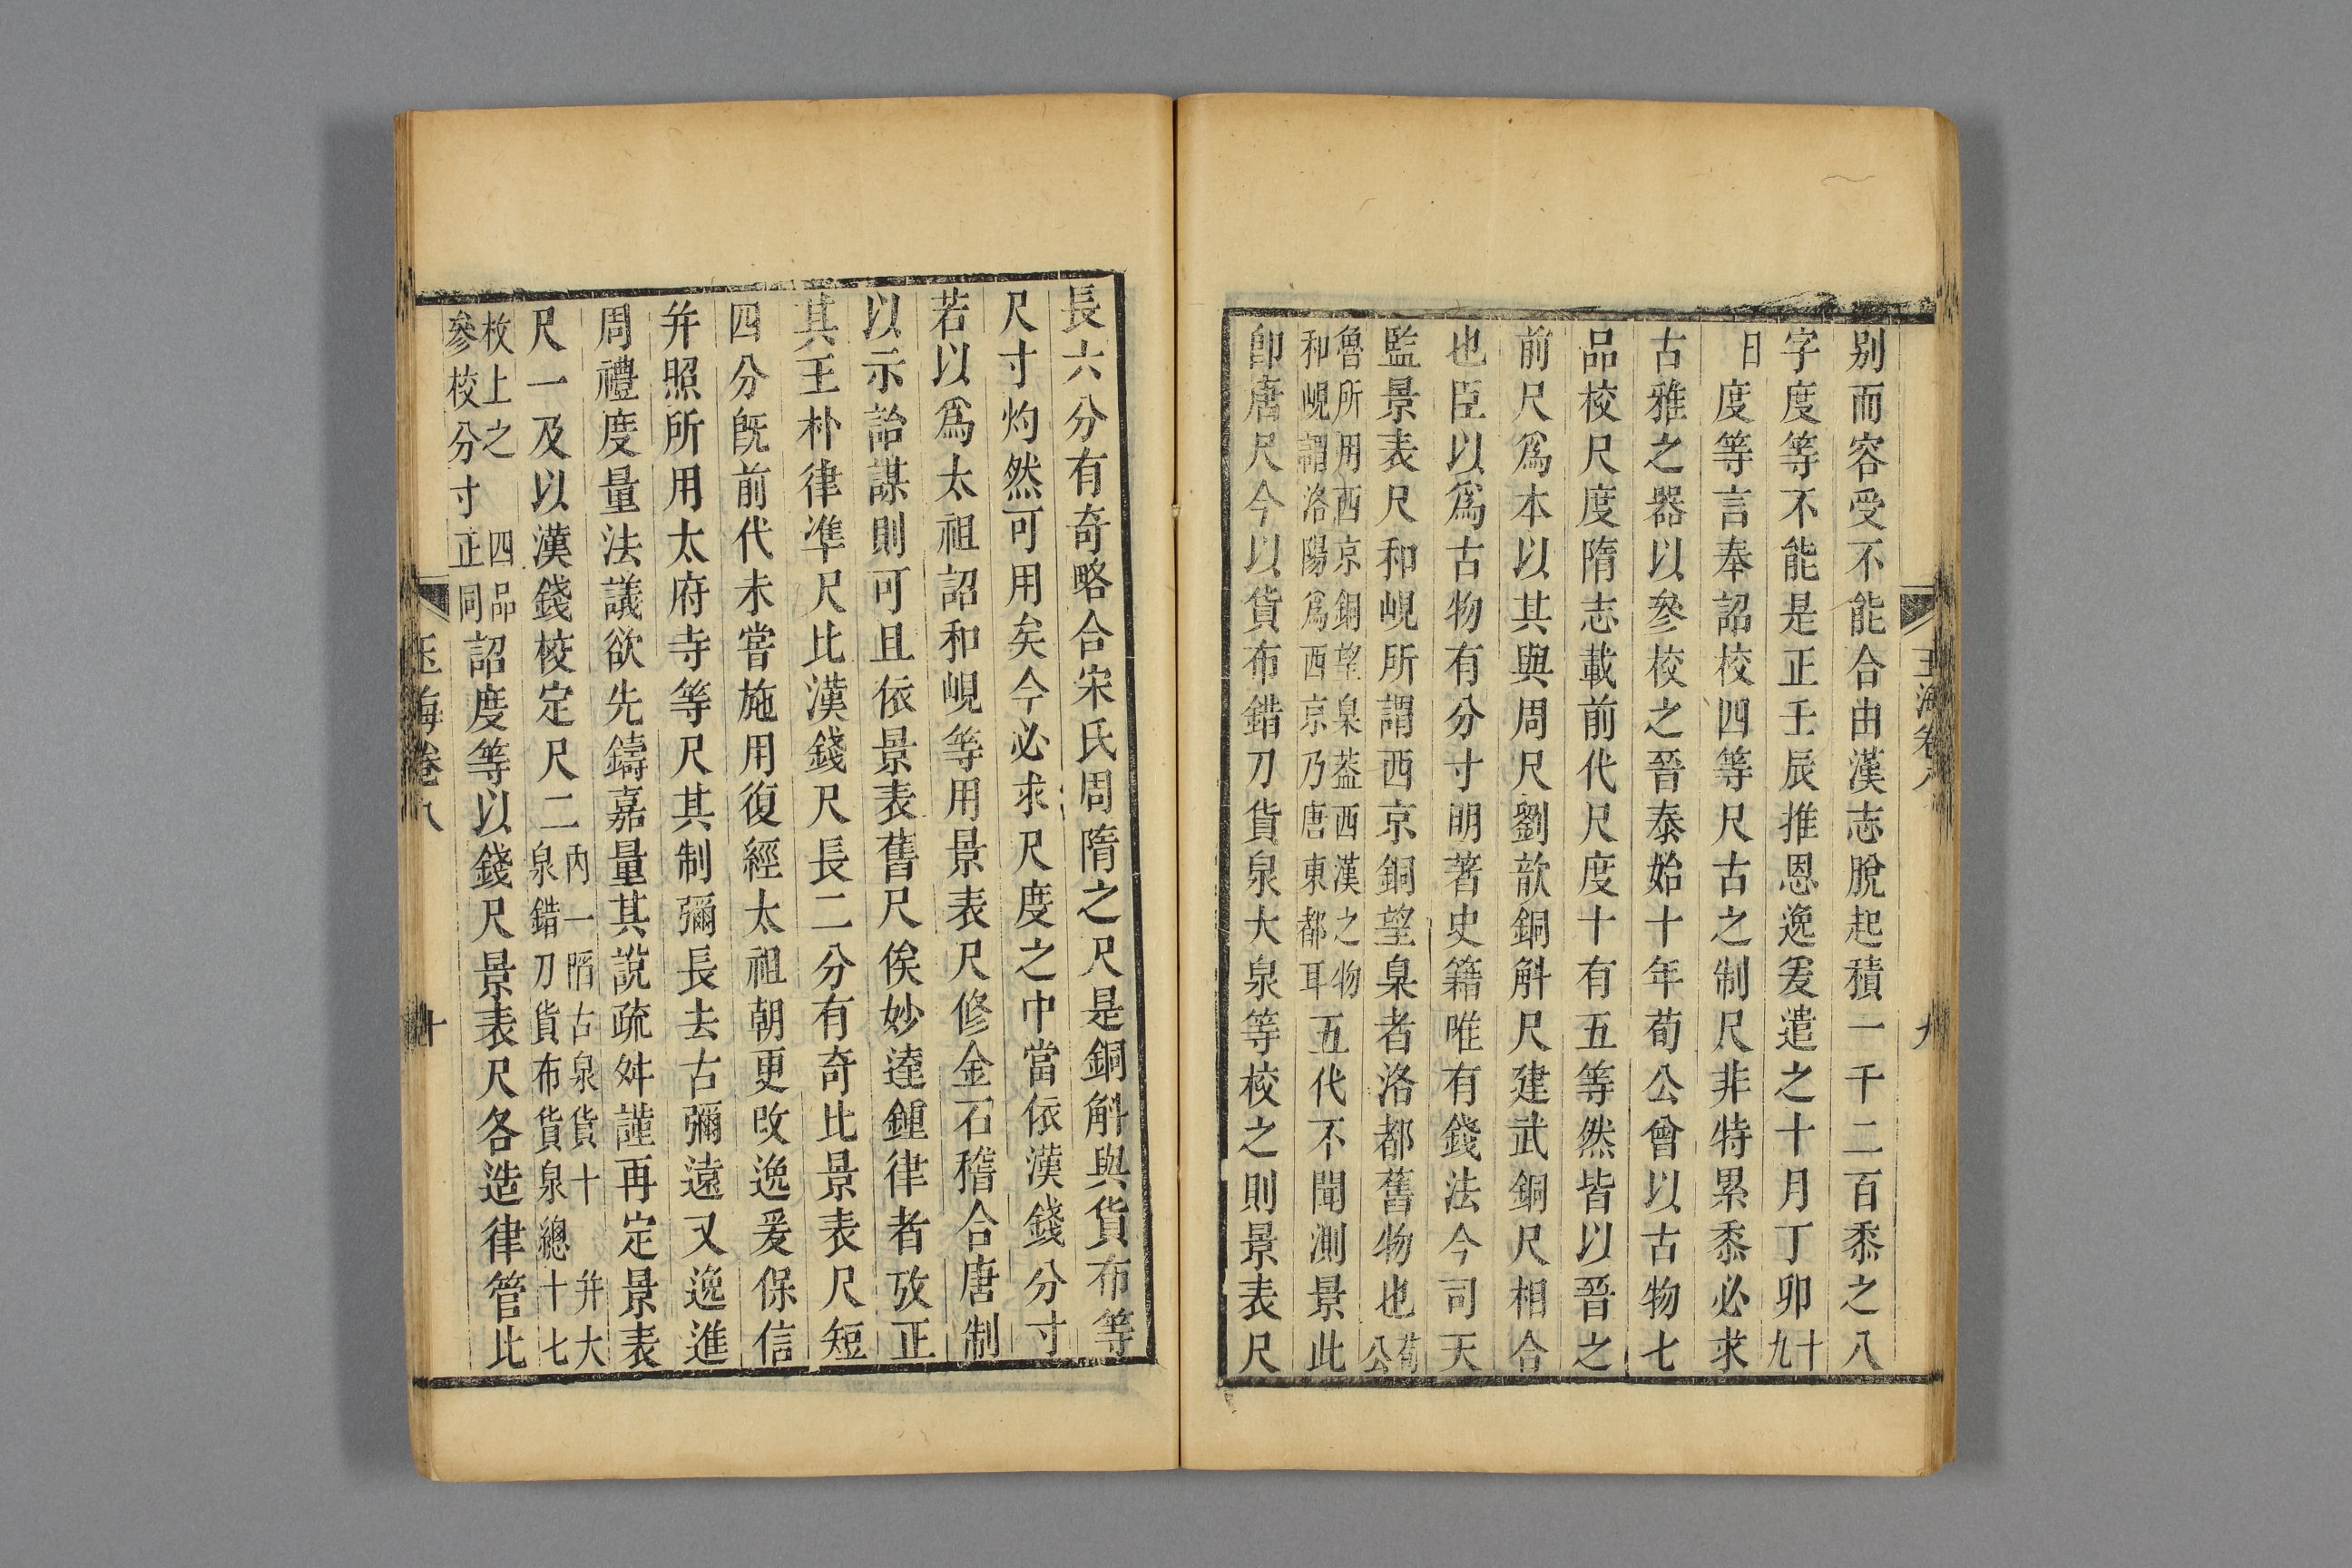 玉海卷八 九
别而容受不能合由漢志脫起積一千二百黍之八
字度等不能是正壬辰推恩逸爰遣之十月丁卯十九
日度等言奉詔校四等尺古之制尺非特累黍必求
古雅之器以參校之晉泰始十年荀公曾以古物七
品校尺度隋志載前代尺度十有五等然皆以晉之
前尺爲本以其與周尺劉歆銅斛尺建武銅尺相合
也臣以爲古物有分寸明著史籍唯有錢法今司天
監景表尺和峴所謂西京銅望臬者洛都舊物也荀公
魯所用西京銅望臬葢西漢之物和峴謂洛陽爲西京乃唐東都耳五代不聞測景此
卽唐尺今以貨布錯刀貨泉大泉等校之則景表尺
長六分有奇略合宋氏周隋之尺是銅斛與貨布等
尺寸灼然可用矣今必求尺度之中當依漢錢分寸
若以爲太祖詔和峴等用景表尺修金石稽合唐制
以示詒謀則可且依景表舊尺俟妙達鍾律者攷正
其王朴律準尺比漢錢尺長二分有奇比景表尺短
四分旣前代未嘗施用復經太祖朝更改逸爰保信
幷照所用太府寺等尺其制彌長去古彌遠又逸進
周禮度量法議欲先鑄嘉量其說疏舛謹再定景表
尺一及以漢錢校定尺二内一㨿古泉貨十幷大泉錯刀貨布貨泉總十七
枚上之四品參校分寸正同詔度等以錢尺景表尺各造律管比
玉海卷八 十